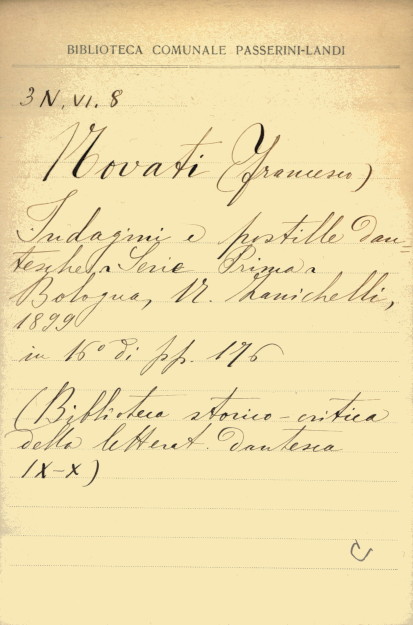 BIBLIOTECA COMUNALE PASSERINI-LANDI
3 N. VI. 8
Novati (Francesco)
Indagini e postille dan=
tesche. Serie Prima.
Bologna, N. Zanichelli,
1899
in 16° di pp. 176
(Biblioteca storico-critica
della letterat. dantesca
IX-X)